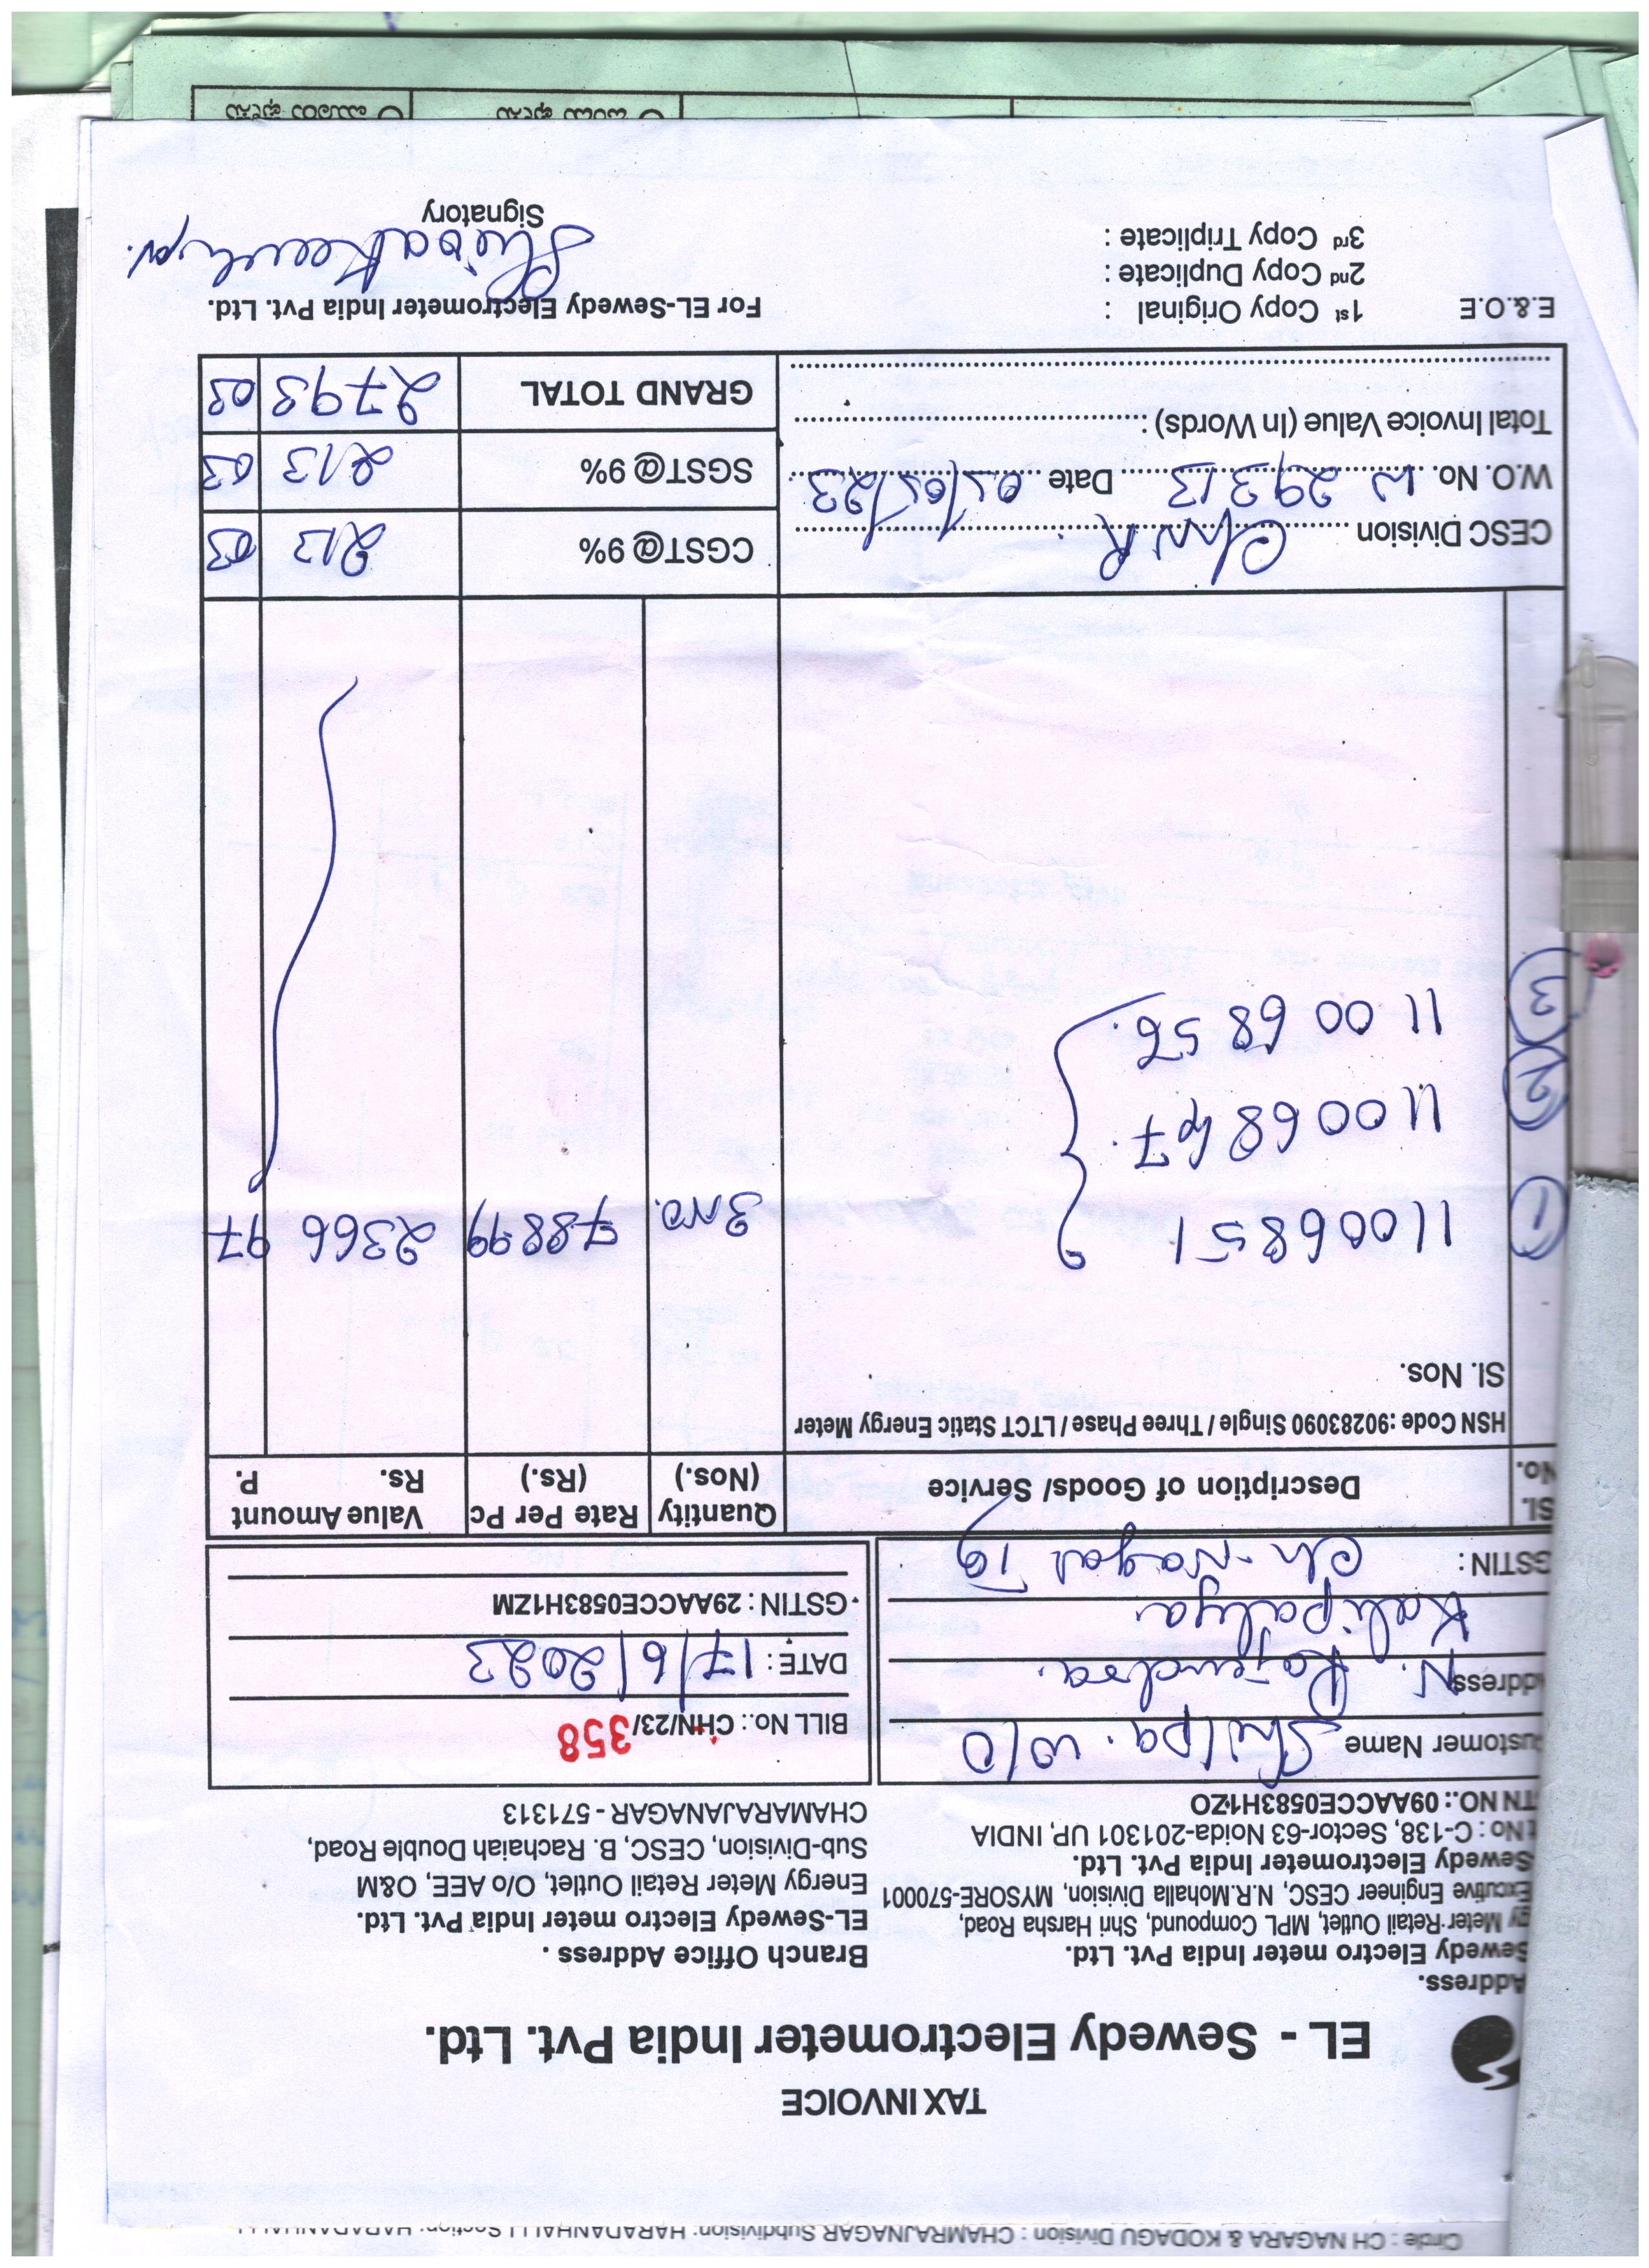 Circle : CH NAGARA & KODAGU Division : CHAMRAJNAGAR Subdivision: HARADANHALLI Section: HARADANHALLI
TAX INVOICE
EL - Sewedy Electrometer India Pvt. Ltd.
Address.
Sewedy Electro meter India Pvt. Ltd.
gy Meter Retail Outlet, MPL Compound, Shri Harsha Road,
Executive Engineer CESC, N.R.Mohalla Division, MYSORE-570001
Sewedy Electrometer India Pvt. Ltd.
t No : C-138, Sector-63 Noida-201301 UP, INDIA
TN NO.: 09AACCE0583H1ZO
Branch Office Address .
EL-Sewedy Electro meter India Pvt. Ltd.
Energy Meter Retail Outlet, O/o AEE, O&M
Sub-Division, CESC, B. Rachaiah Double Road,
CHAMARAJANAGAR - 571313
ustomer Name Shilpa. w/o
ddress N. Rajendra.
Kalipalya.
GSTIN : Ch-Nagar Tq
BILL No.: CHN/23/ 358
DATE : 17/6/2023
GSTIN : 29AACCE0583H1ZM
Sl. No. Description of Goods/ Service Quantity (Nos.) Rate Per Pc (Rs.) Value Amount Rs. P.
HSN Code :90283090 Single / Three Phase / LTCT Static Energy Meter
Sl. Nos.
1 11006851 3 no. 788 99 2366 97
2 11006847.
3 11006856.
CESC Division Chn R.
W.O. No. W 29313 Date 02/05/23
Total Invoice Value (In Words) :
CGST@ 9% 213 03
SGST@ 9% 213 03
GRAND TOTAL 2793 03
E.&.O.E
1st Copy Original :
2nd Copy Duplicate :
3rd Copy Triplicate :
For EL-Sewedy Electrometer India Pvt. Ltd.
Signatory